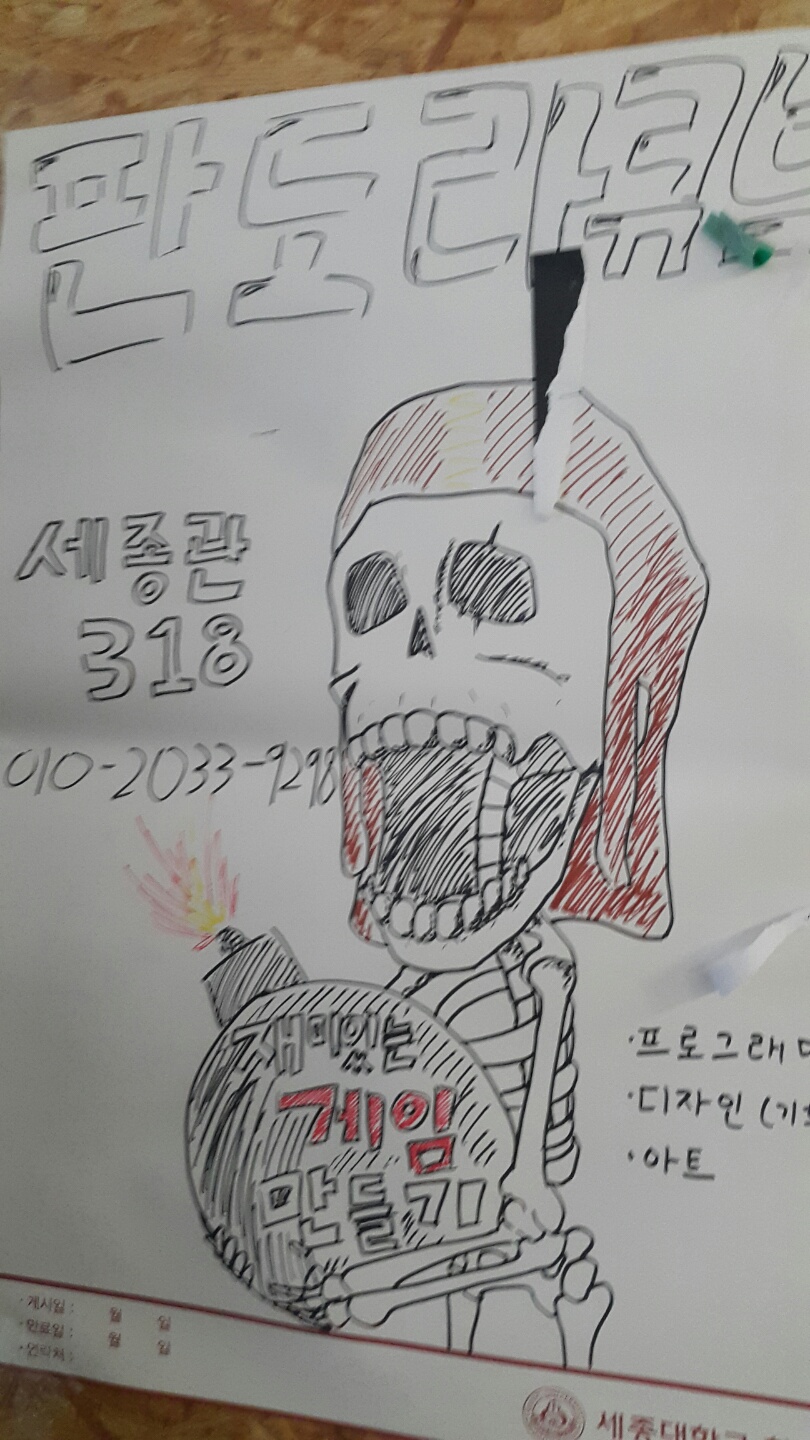 판도라큐브
세종관
318
010-2033-9298
재미있는
게임
만들기
·프로그래머
·디자인 (기획
·아트
·게시일 : 월 일
·완료일 : 월 일
·연락처 :
세종대학교